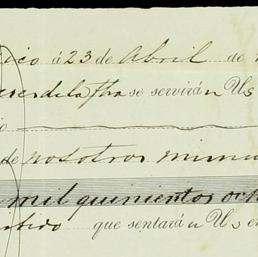 ico á 23 de Abril de
de la fha se servirán Us
de nosotros mismos
mil quinientos och
que sentará n Us en